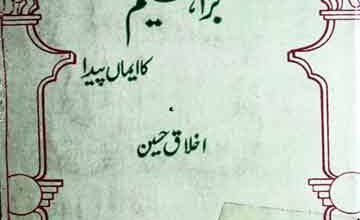 براہیم
کا ایماں پیدا
اخلاق حسین